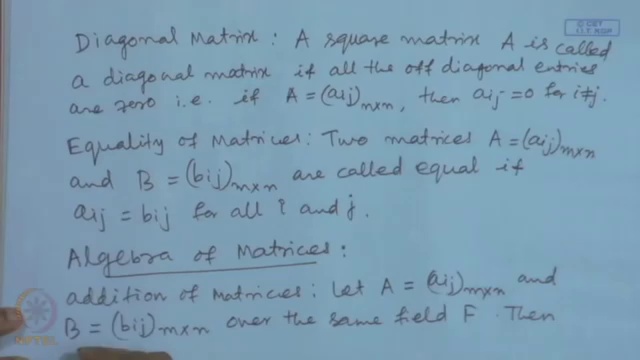 © CET
I.I.T. KGP
Diagonal Matrix: A square matrix A is called
a diagonal matrix if all the off diagonal entries
are zero i.e. if A = (aij)n×n, then aij = 0 for i≠j.
Equality of Matrices: Two matrices A = (aij)m×n
and B = (bij)m×n are called equal if
aij = bij for all i and j.
Algebra of Matrices:
addition of Matrices: Let A = (aij)m×n and
B = (bij)m×n over the same field F. Then
NPTEL